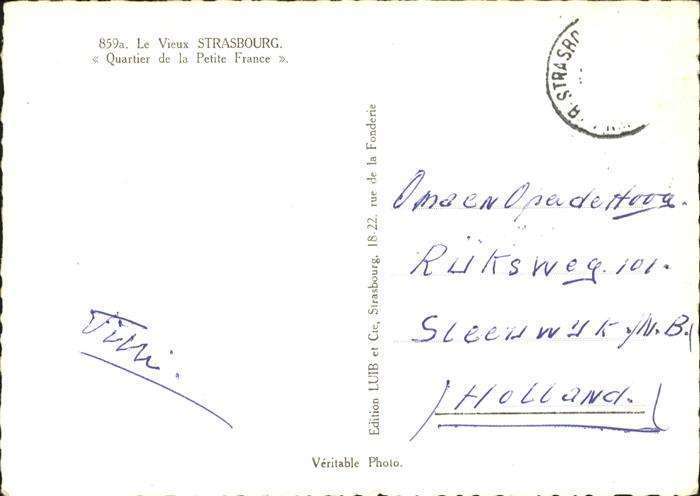 859a. Le Vieux STRASBOURG.
« Quartier de la Petite France ».
STRASBO
Edition LUIB et Cie, Strasbourg, 18-22, rue de la Fonderie
Oma en Opa de Hoog.
Rijksweg. 101.
Sleeuwijk /N.B./
/Holland./
Véritable Photo.